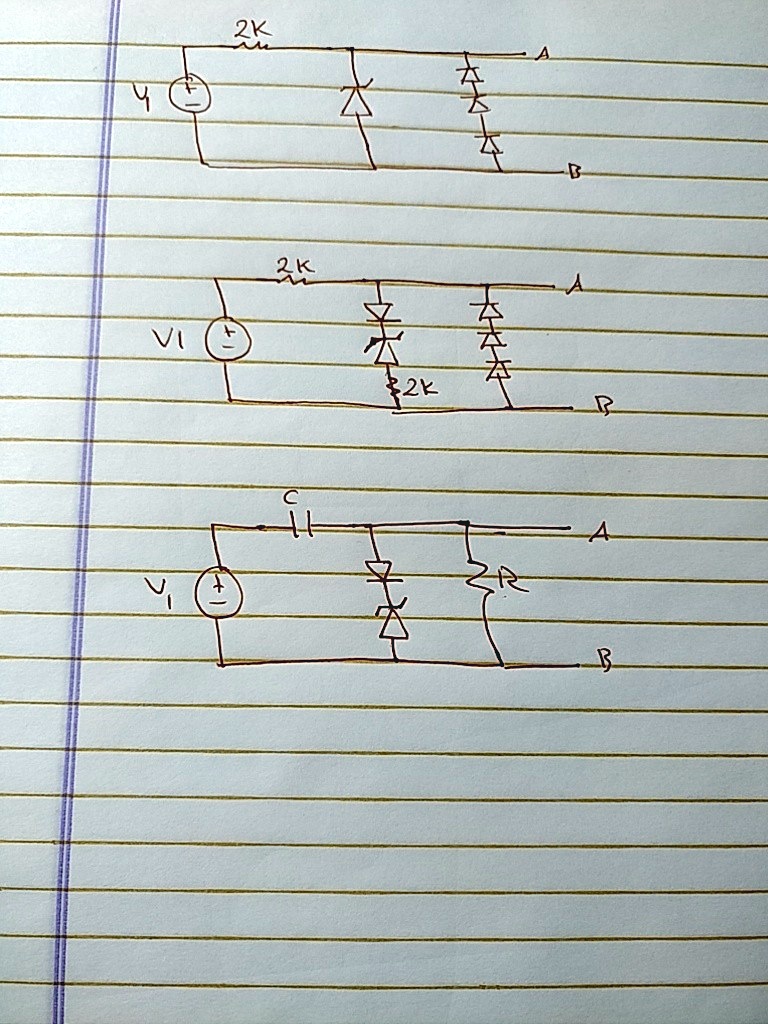 2K
V1
A
B
2K
V1
2K
A
B
C
V1
R
A
B